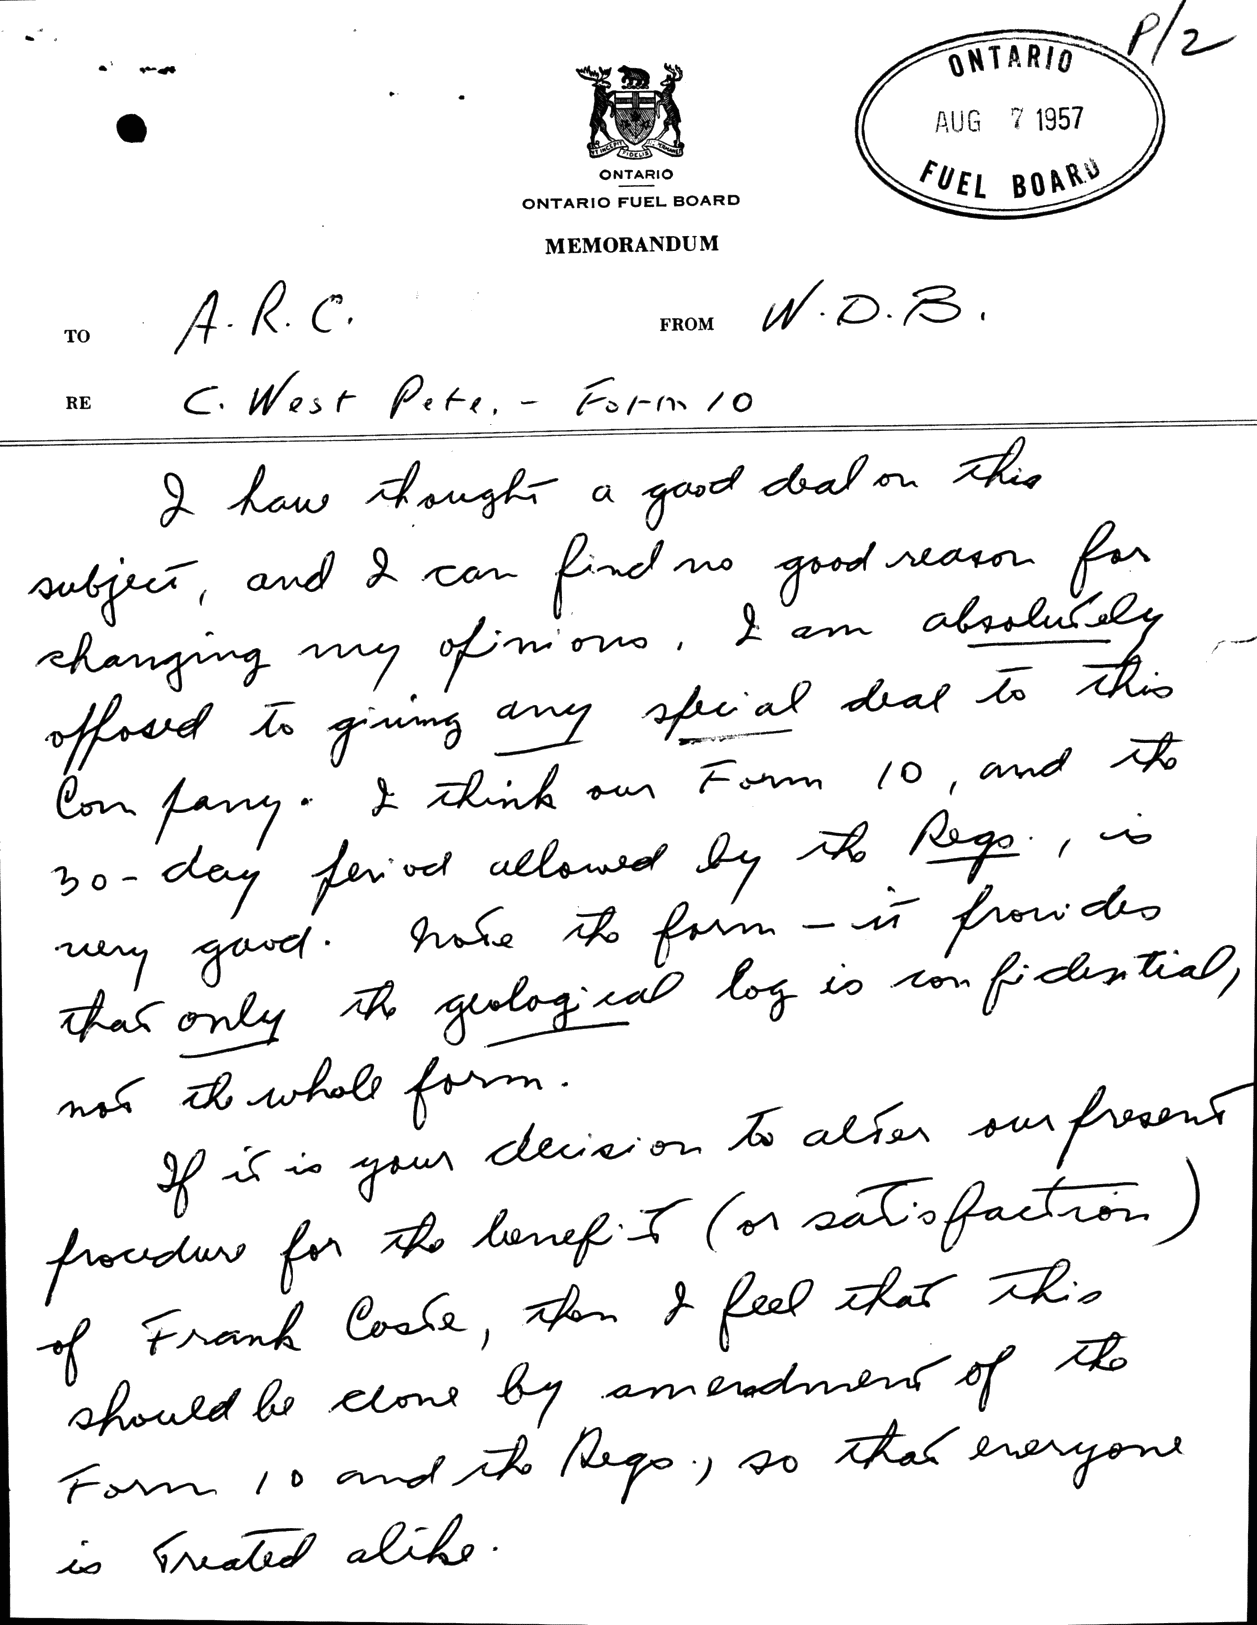 P/2
ONTARIO
AUG 7 1957
FUEL BOARD
ONTARIO
ONTARIO FUEL BOARD
MEMORANDUM
TO A.R.C. FROM W.D.B.
RE C. West Pete. - Form 10
I have thought a good deal on this
subject, and I can find no good reason for
changing my opinions. I am absolutely
opposed to giving any special deal to this
Company. I think our Form 10, and the
30-day period allowed by the Regs., is
very good. Note the form - it provides
that only the geological log is confidential,
not the whole form.
If it is your decision to alter our present
procedure for the benefit (or satisfaction)
of Frank Coste, then I feel that this
should be done by amendment of the
Form 10 and the Regs., so that everyone
is treated alike.